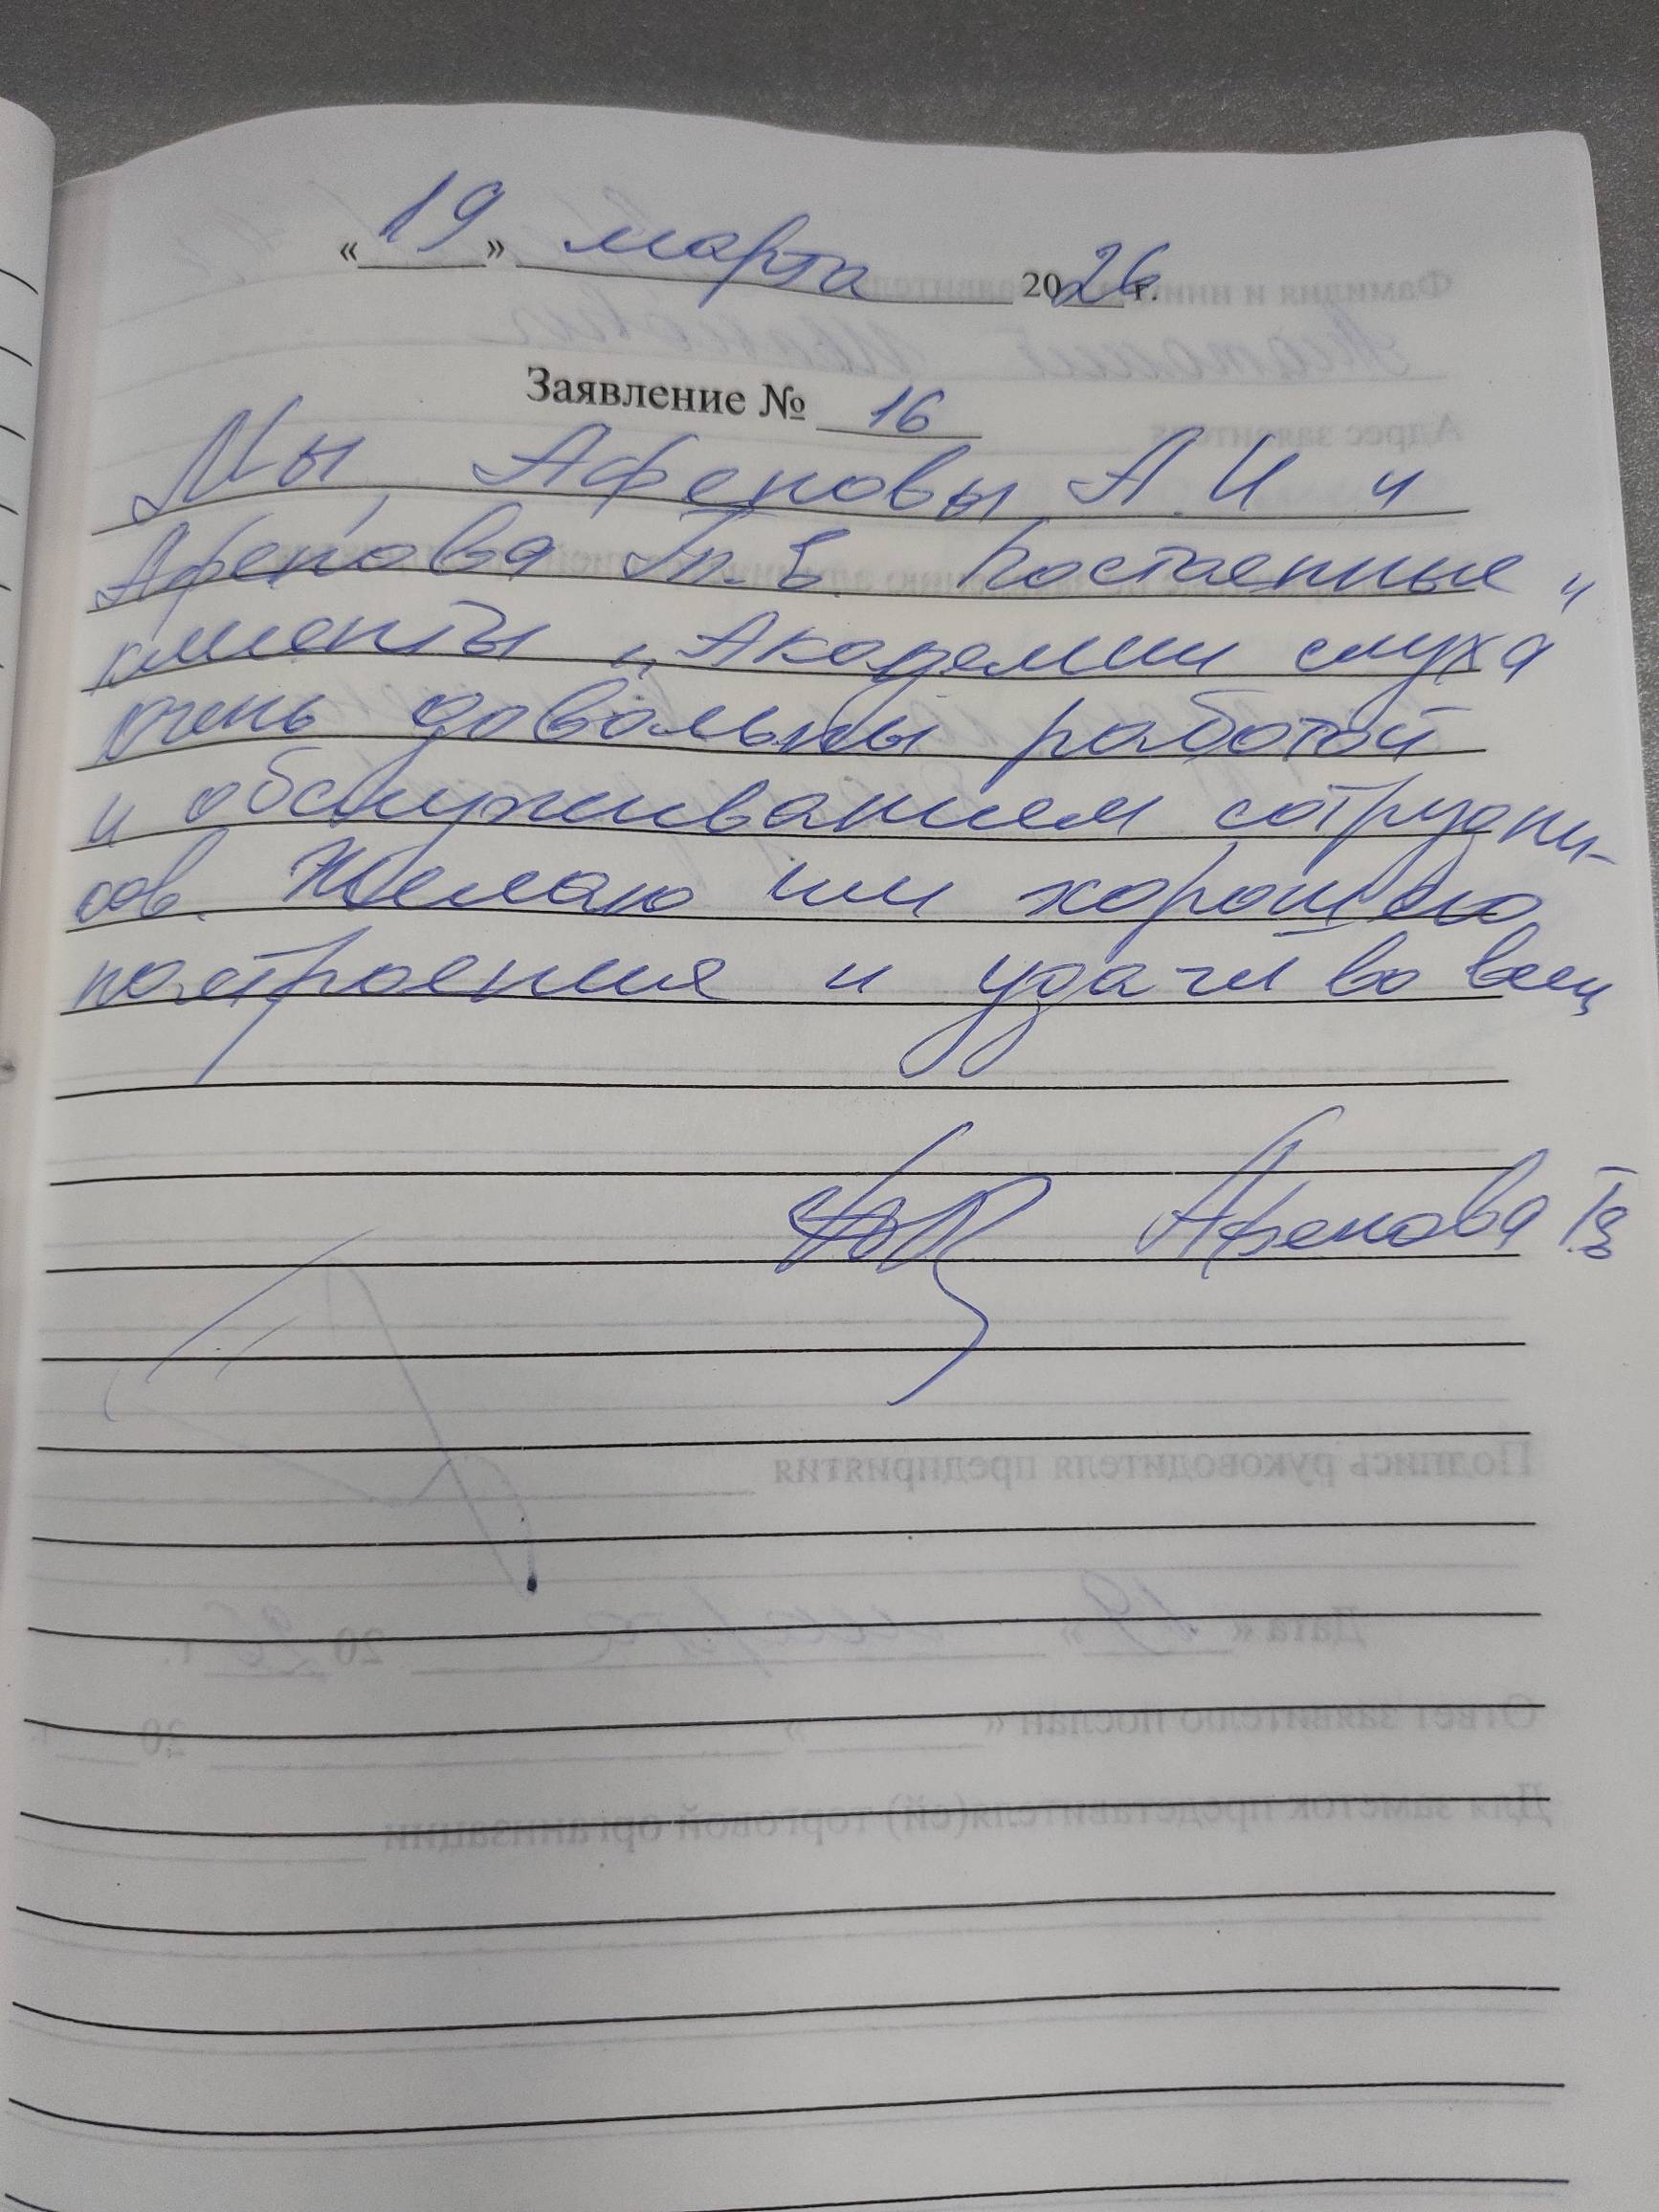 «19» марта 2026 г.
Заявление № 16
Мы, Афеновы А.И и
Афенова Т.В постаенные
клиенты „Академии слуха"
очень довольны работой
и обслуживанием сотрудни-
ков. Желаю им хорошего
настроения и удачи во всем
Афенова ТВ